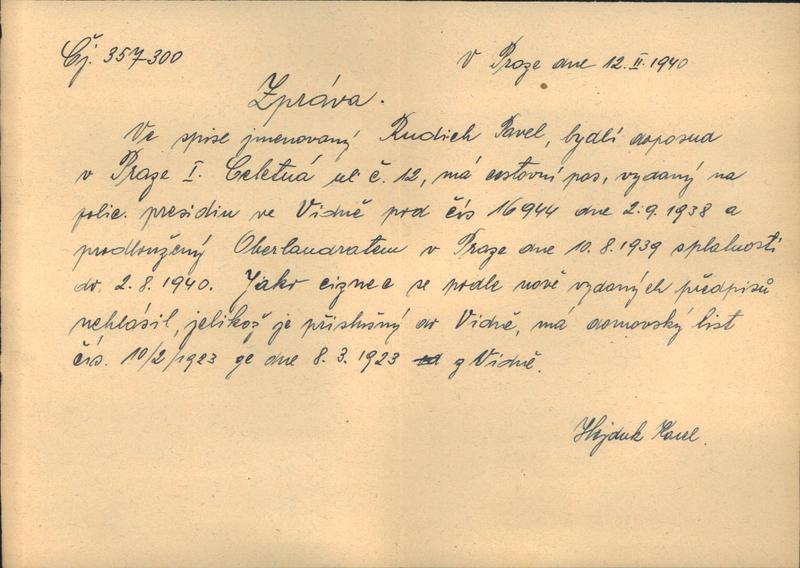 Čj. 357300
V Praze dne 12. II. 1940
Zpráva.
Ve spise jmenovaný Rudich Pavel, bydlí doposud
v Praze I. Celetná ul č. 12, má cestovní pas, vydaný na
polic. presidiu ve Vídně pod čís 16944 dne 2. 9. 1938 a
prodloužený Oberlandratem v Praze dne 10. 8. 1939 splatností
do 2. 8. 1940. Jako cizinec se podle nově vydaných předpisů
nehlásil, jelikož je příslušný do Vídně, má domovský list
čís. 10/2/1923 ze dne 8. 3. 1923 z Vídně.
Hejduk Karel.